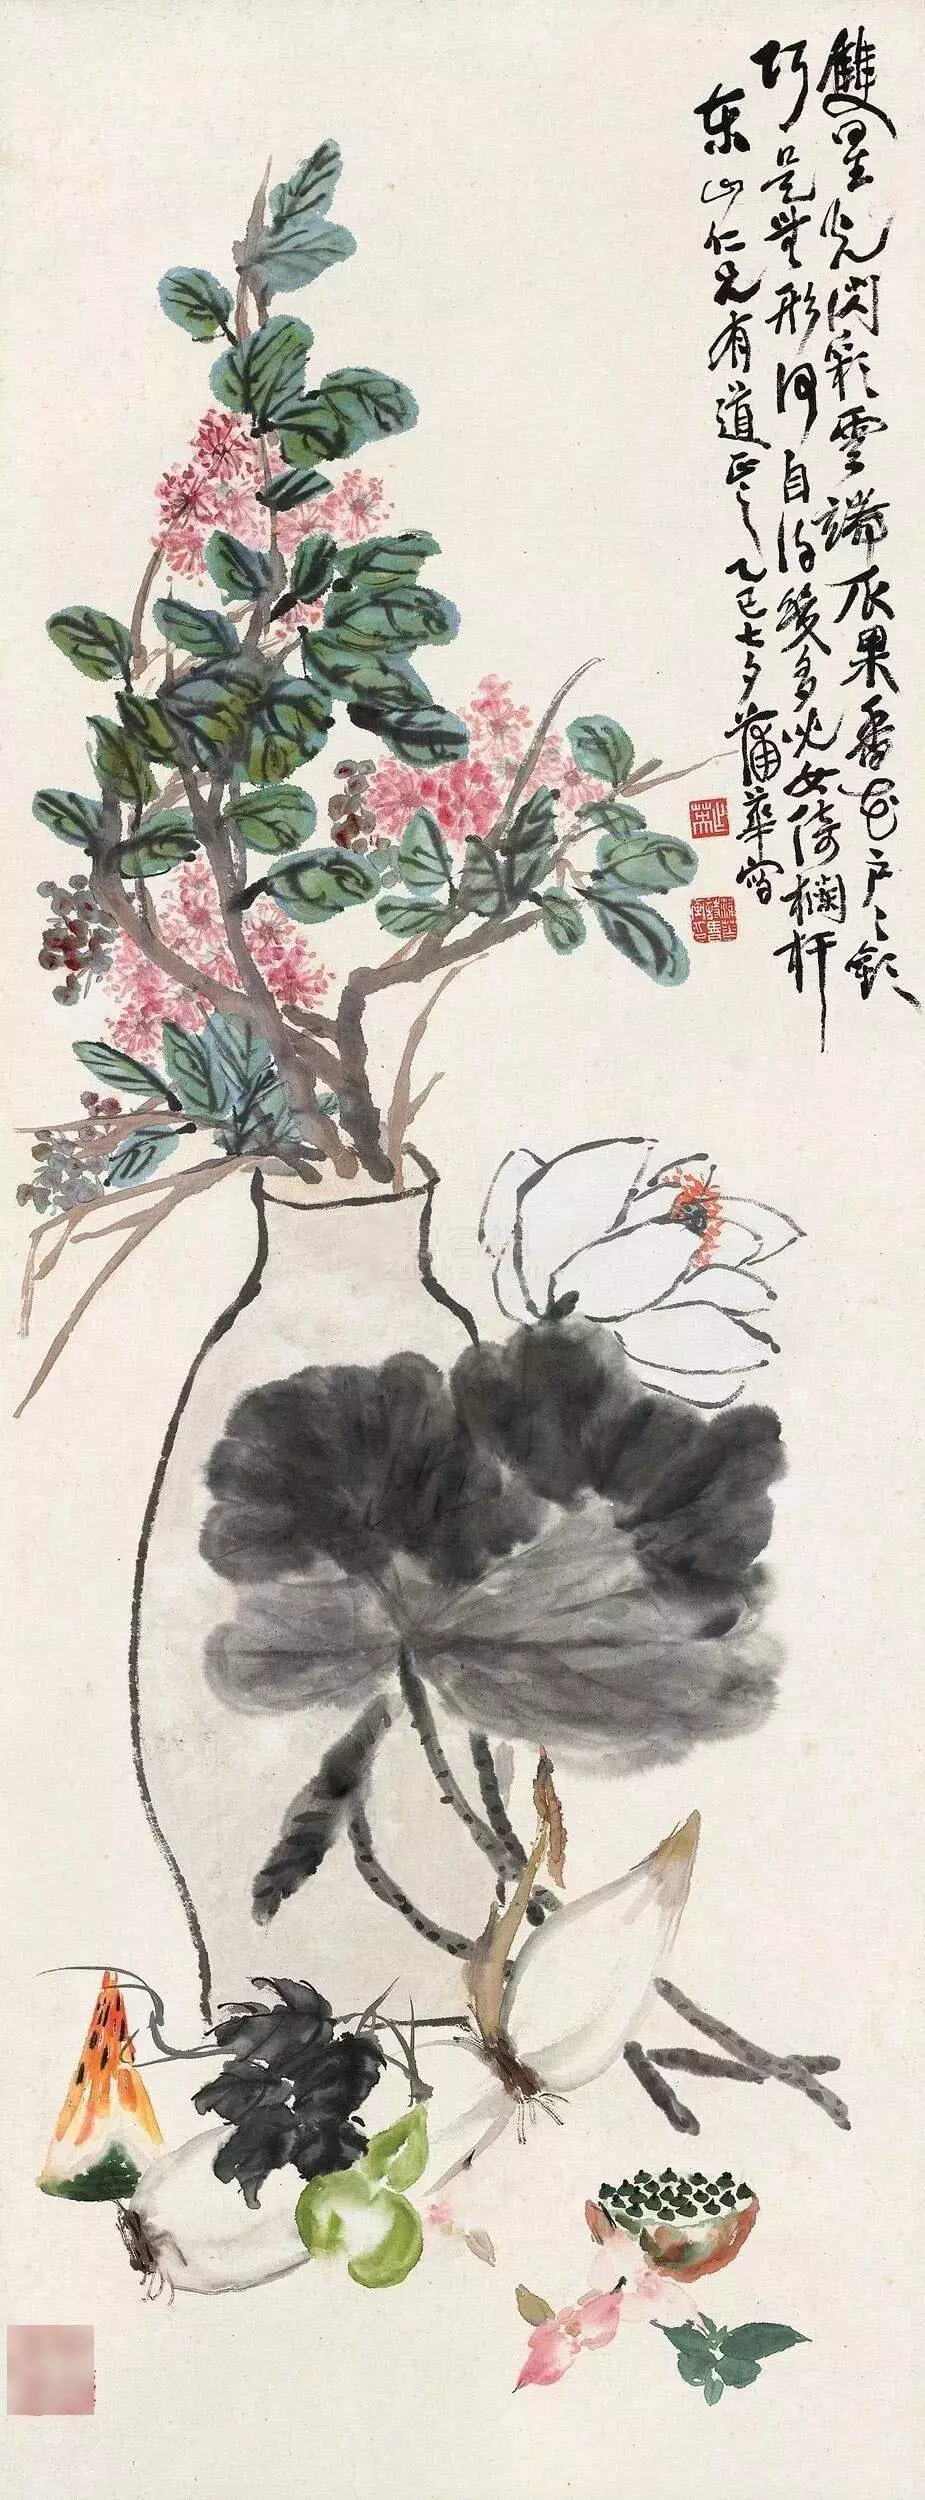 雙星光閃彩雲端瓜果香花戶々歡
巧是無形何自得幾多兒女倚欄杆
東山仁兄有道正之乙巳七夕蒲華寫